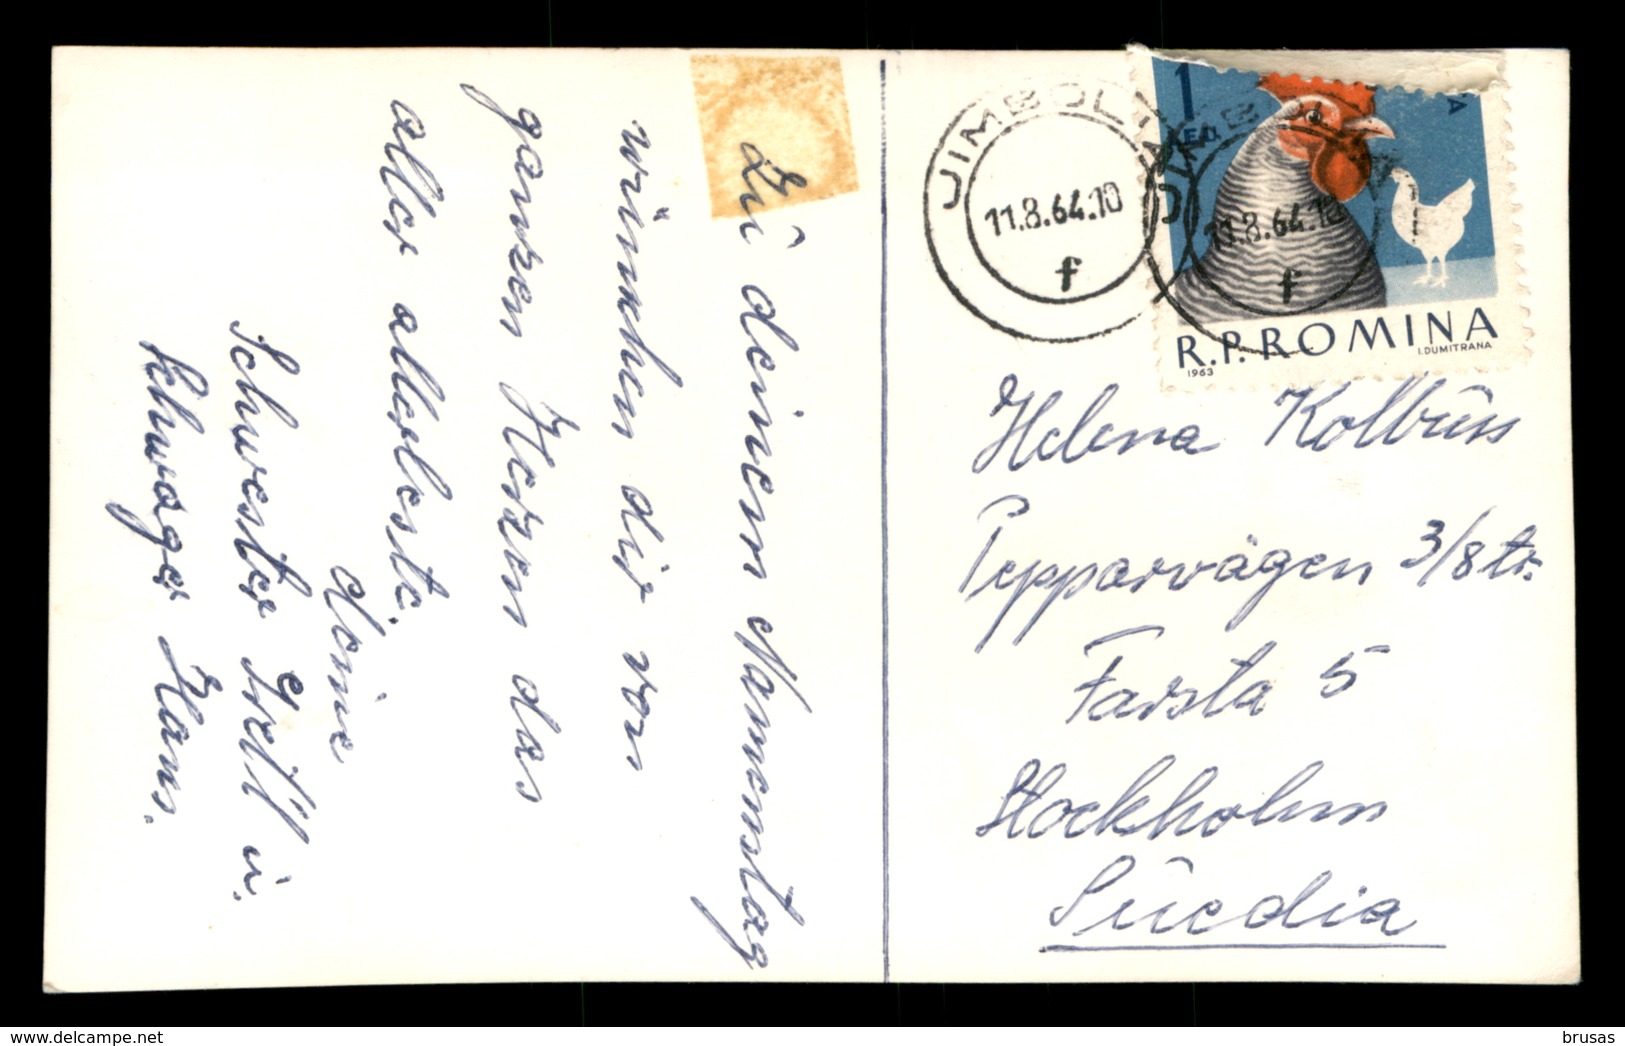 Zu deinem Namenstag
wünschen dir von
ganzen Herzen das
aller allerbeste.
deine
Schwester Gretl u.
Schwager Hans.
JIMBOLIA
11.8.64.10
f
11.8.64.10
f
1
R.P.ROMINA
1963
I.DUMITRANA
Helena Kolbus
Pepparvägen 3/8 tr.
Farsta 5
Stockholm
Suedia
delcampe.net
brusas